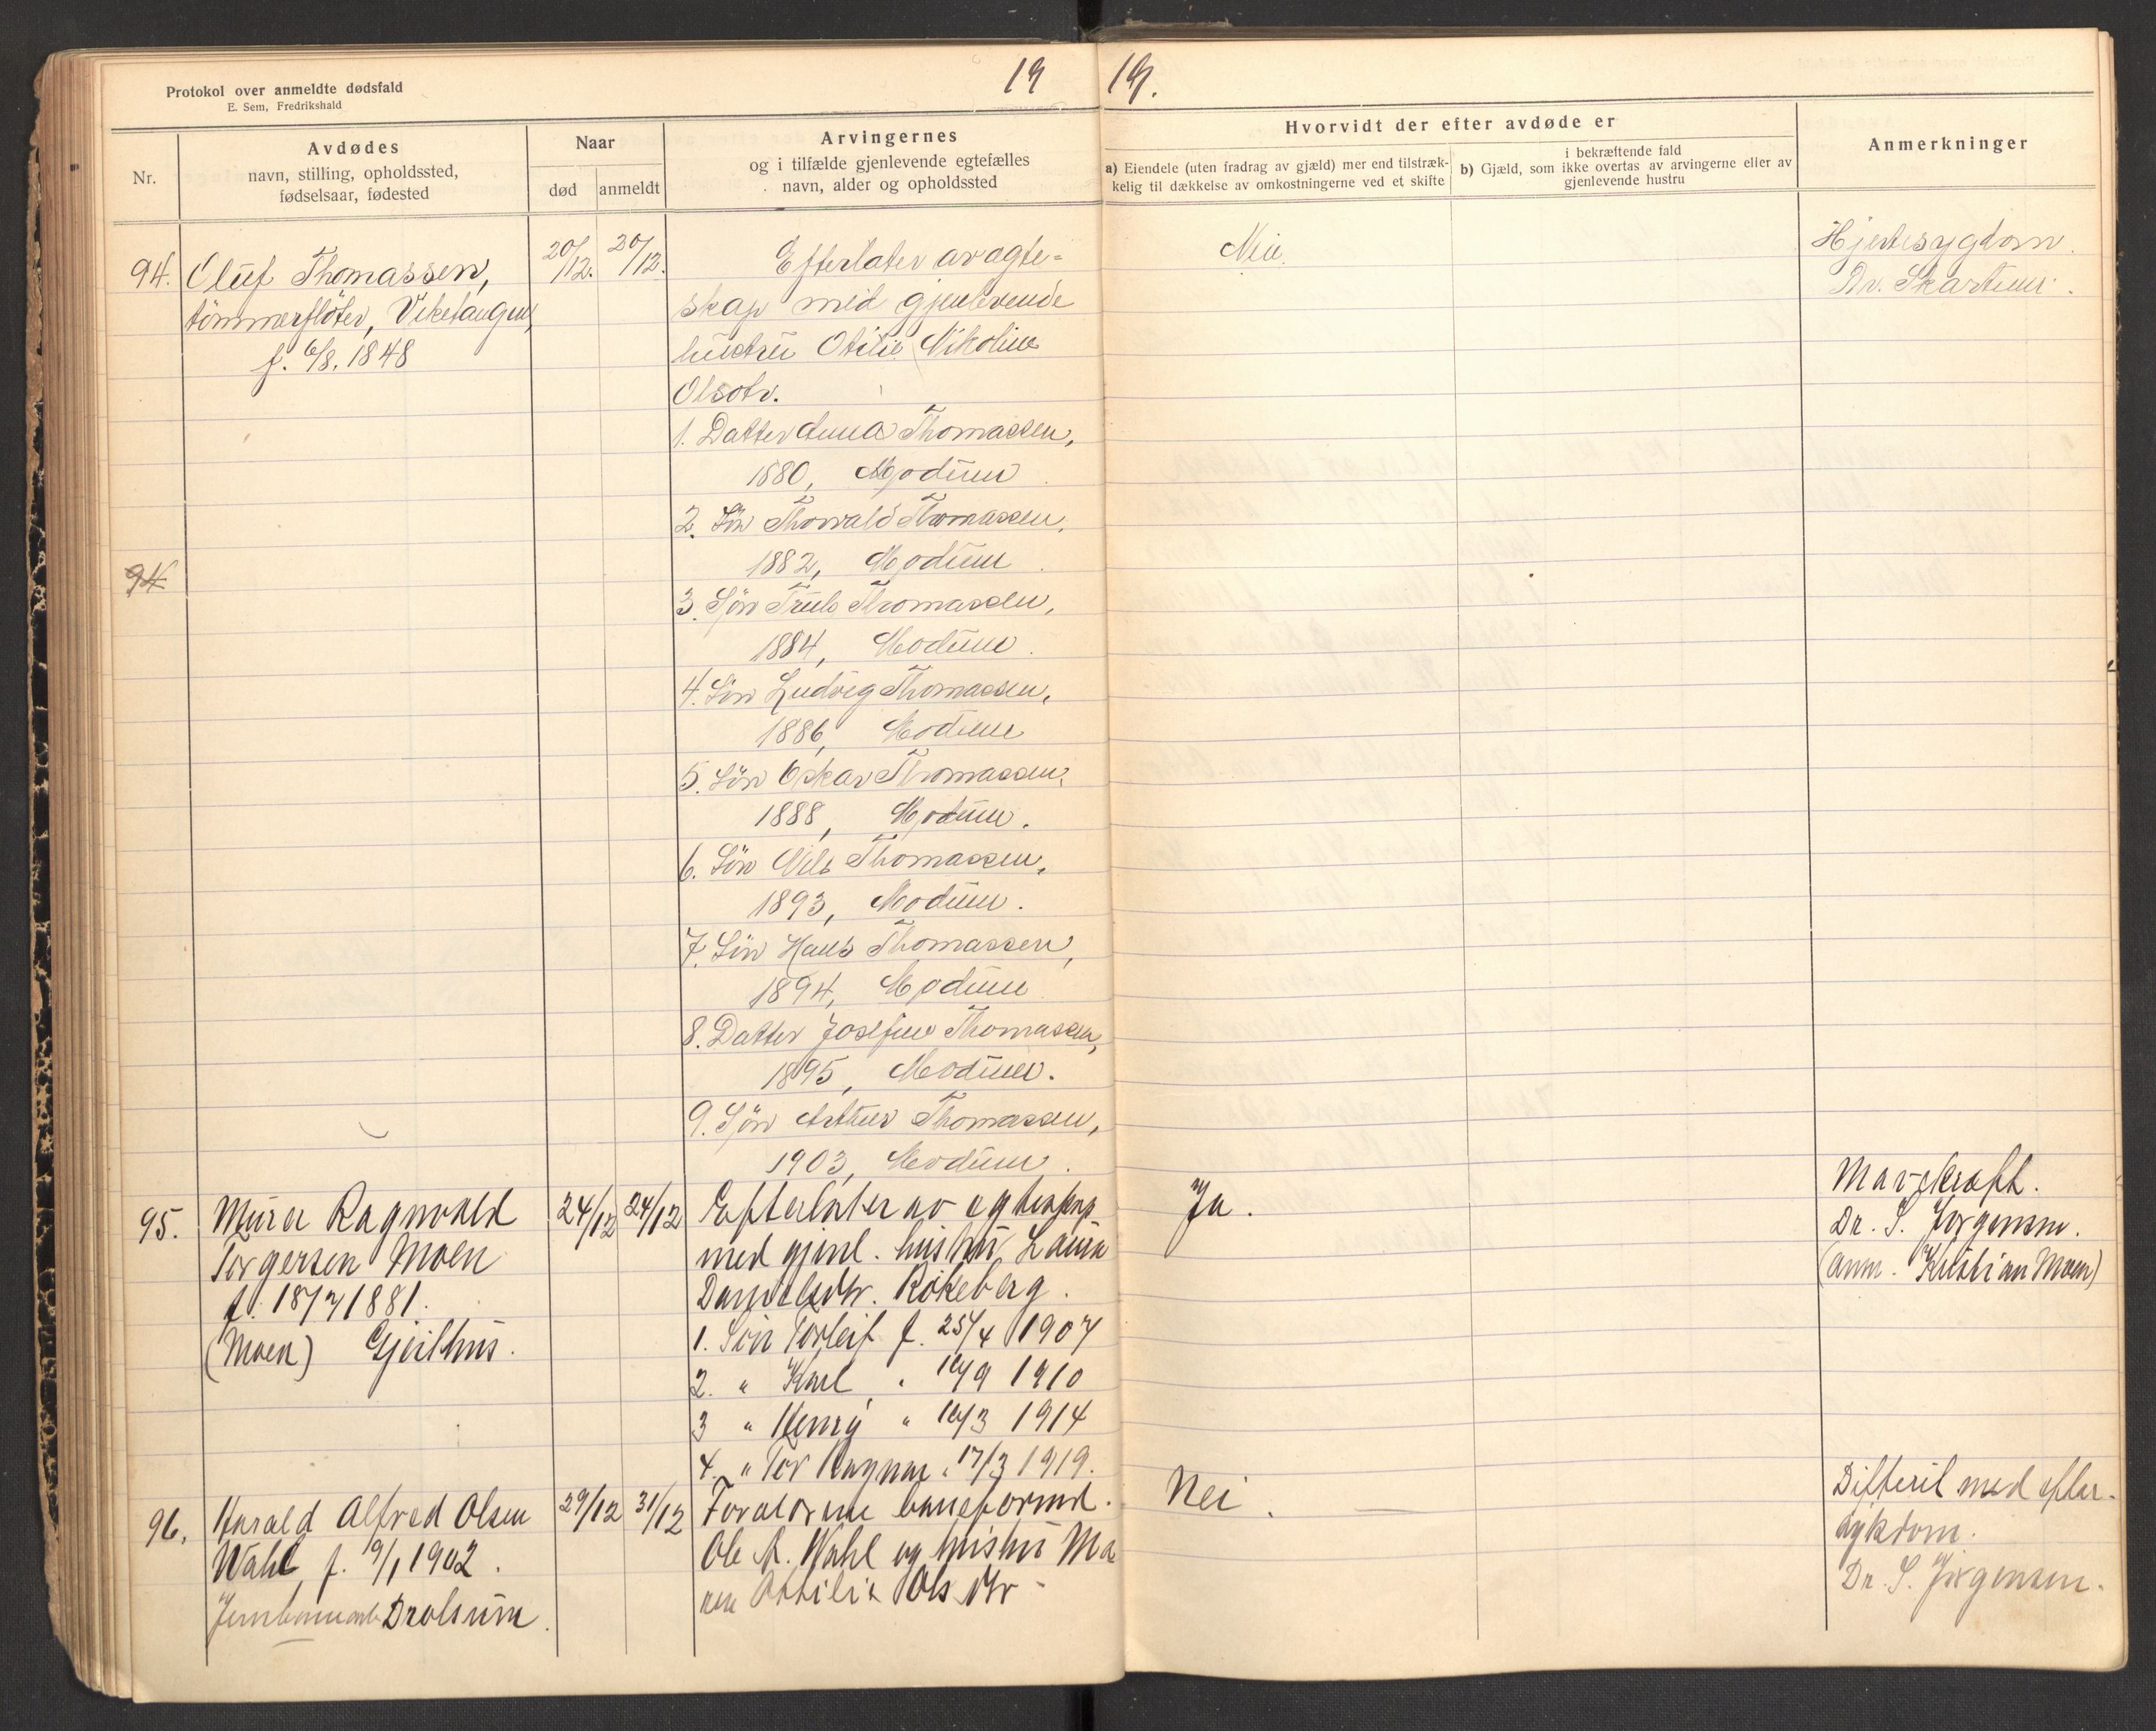 Protokol over anmeldte dødsfald
E. Sem, Fredrikshald
19
19.
Nr.
Avdødes
navn, stilling, opholdssted,
fødselsaar, fødested
Naar
død
anmeldt
Arvingernes
og i tilfælde gjenlevende egtefælles
navn, alder og opholdssted
Hvorvidt der efter avdøde er
a) Eiendele (uten fradrag av gjæld) mer end tilstræk-
kelig til dækkelse av omkostningerne ved et skifte
b) Gjæld, som
i bekræftende fald
ikke overtas av arvingerne eller av
gjenlevende hustru
Anmerkninger
94. Oluf Thomassen,
tömmerflöter, Viketangen,
f. 6/8. 1848
20/12. 20/12.
Efterlater av egte=
skap med gjenlevende
hustru Otilie Nikoline
Olsdtr.
1. Datter Anna Thomassen,
1880, Modum
2. Sön Thorvald Thomassen,
1882, Modum
3. Sön Truls Thomassen,
1884, Modum
4. Sön Ludvig Thomassen,
1886, Modum
5. Sön Oskar Thomassen,
1888, Modum.
6. Sön Nils Thomassen,
1893, Modum.
7. Sön Hans Thomassen,
1894, Modum
8. Datter Josefine Thomassen,
1895, Modum.
9. Sön Arthur Thomassen,
1903, Modum.
Nei
Hjertesygdom.
Dr. Skartum.
94
95. Murer Ragnvald
Torgersen Moen
f. 18/7 1881.
(Moen) Gjeithus.
24/12 24/12
Efterlater av egteskap
med gjenl. hustru Laura
Danielsdtr. Rökeberg.
1. Sön Torleif f. 25/4 1907
2. " Karl " 10/9 1910
3 " Henry " 10/3 1914
4. " Tor Ragnar " 17/3 1919.
Ja.
Marvskraft.
Dr. S. Jørgensen.
(Anm. Kristian Moen)
96. Harald Alfred Olsen
Wahl f. 9/1 1902.
Jernbanearb Drolsum.
29/12 31/12
Forældrene baneformd.
Ole A. Wahl og hustru Ma
ren Ottilie Olsdtr
Nei.
Difterit med efter-
sykdom.
Dr. S. Jørgensen.